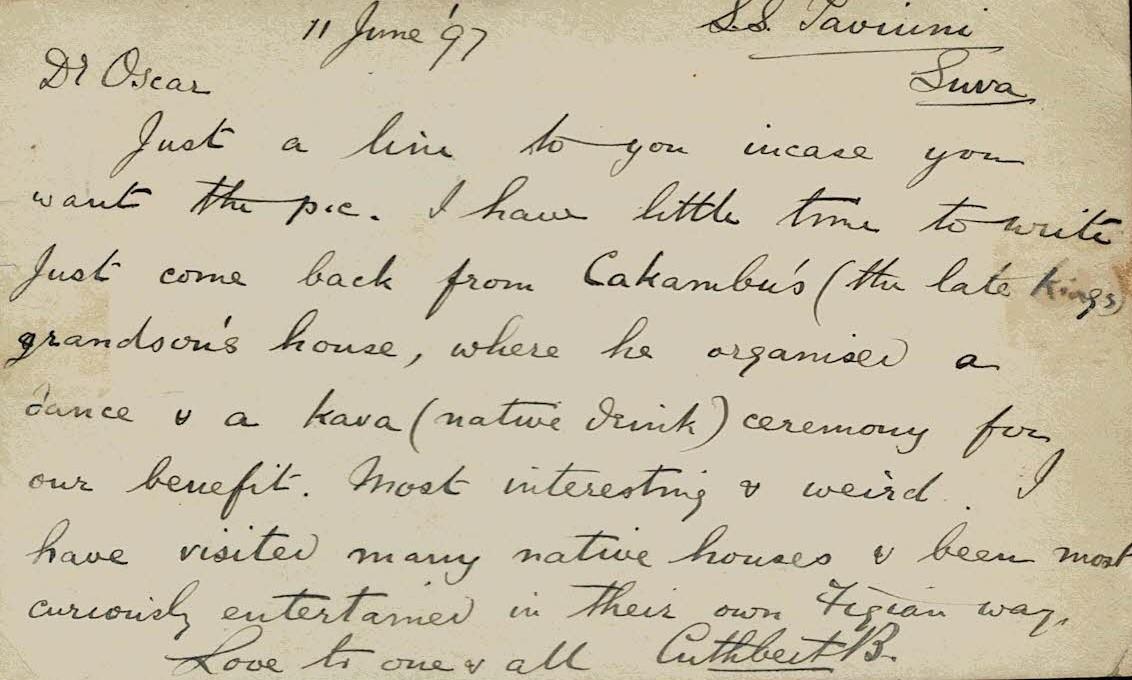 11 June '97 S.S. Taviuni
Suva
Dr Oscar
Just a line to you incase you
want the pic. I have little time to write
Just come back from Cakambu's (the late Kings)
grandson's house, where he organised a
dance & a kava (native drink) ceremony for
our benefit. Most interesting & weird. I
have visited many native houses & been most
curiously entertained in their own Figian way.
Love to one & all Cuthbert B.